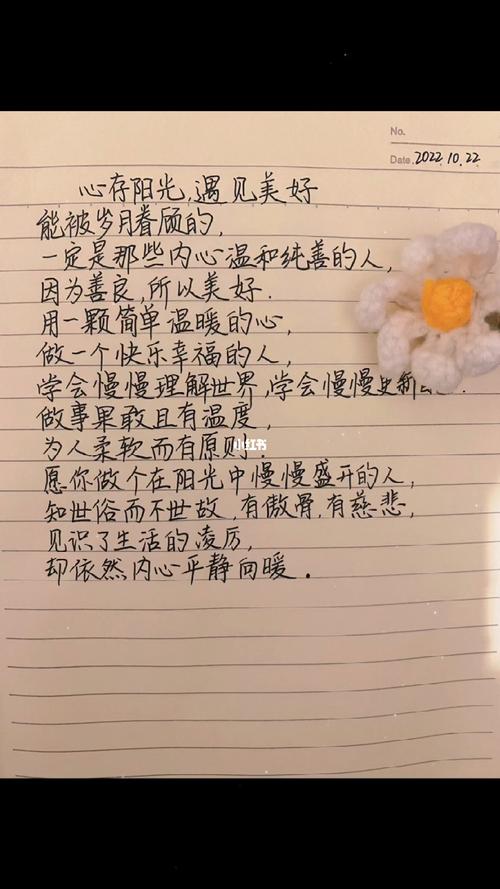 No.
Date 2022.10.22
心存阳光,遇见美好
能被岁月眷顾的,
一定是那些内心温和纯善的人,
因为善良,所以美好.
用一颗简单温暖的心,
做一个快乐幸福的人,
学会慢慢理解世界,学会慢慢更新
做事果敢且有温度,
为人柔软而有原则.
小红书
愿你做个在阳光中慢慢盛开的人,
知世俗而不世故,有傲骨,有慈悲,
见识了生活的凌厉,
却依然内心平静向暖.